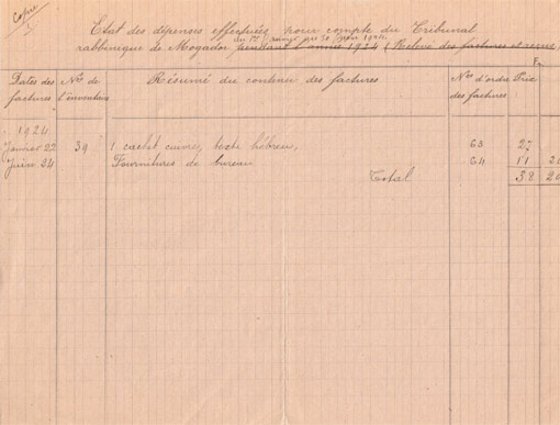 Copie
Etat des dépenses effectuées pour compte du Tribunal
du 1er janvier au 30 juin 1924
rabbinique de Mogador pendant l'année 1924 (Relevé des factures et reçus)
Fr
Dates des factures Nos de l'inventaire Résumé du contenu des factures Nos d'ordre des factures Prix
1924
Janvier 22 39 1 cachet cuivre, texte hébreu, 63 27
Juin 24 Fournitures de bureau 64 11 20
Total 38 20